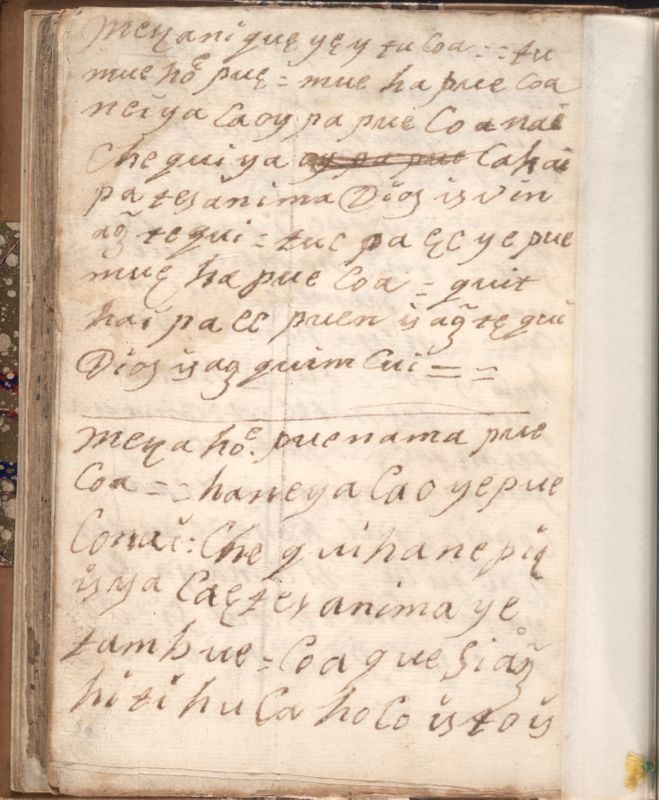 meɥani quę yę y tu Coa = : tu
mue hoᵉ puę = mue ha pue Coa
neiya Caoy pa pue Co a nai
Che qui ya oy pa pue Ca hai
pa tesanima Dios is vin
tequi = tuc pa ęc y e pue
muę ha pue Coa = quit
hai pa ec puen tę qui
Dios quim Cui = =
meɥa hoᵉ. puenama pue
Coa = = haneya Cao yepue
Conai: Che qui hane pię
is ya Caętes anima ye
tambue = Coa que
hi ti hu Ca ho Co is to is